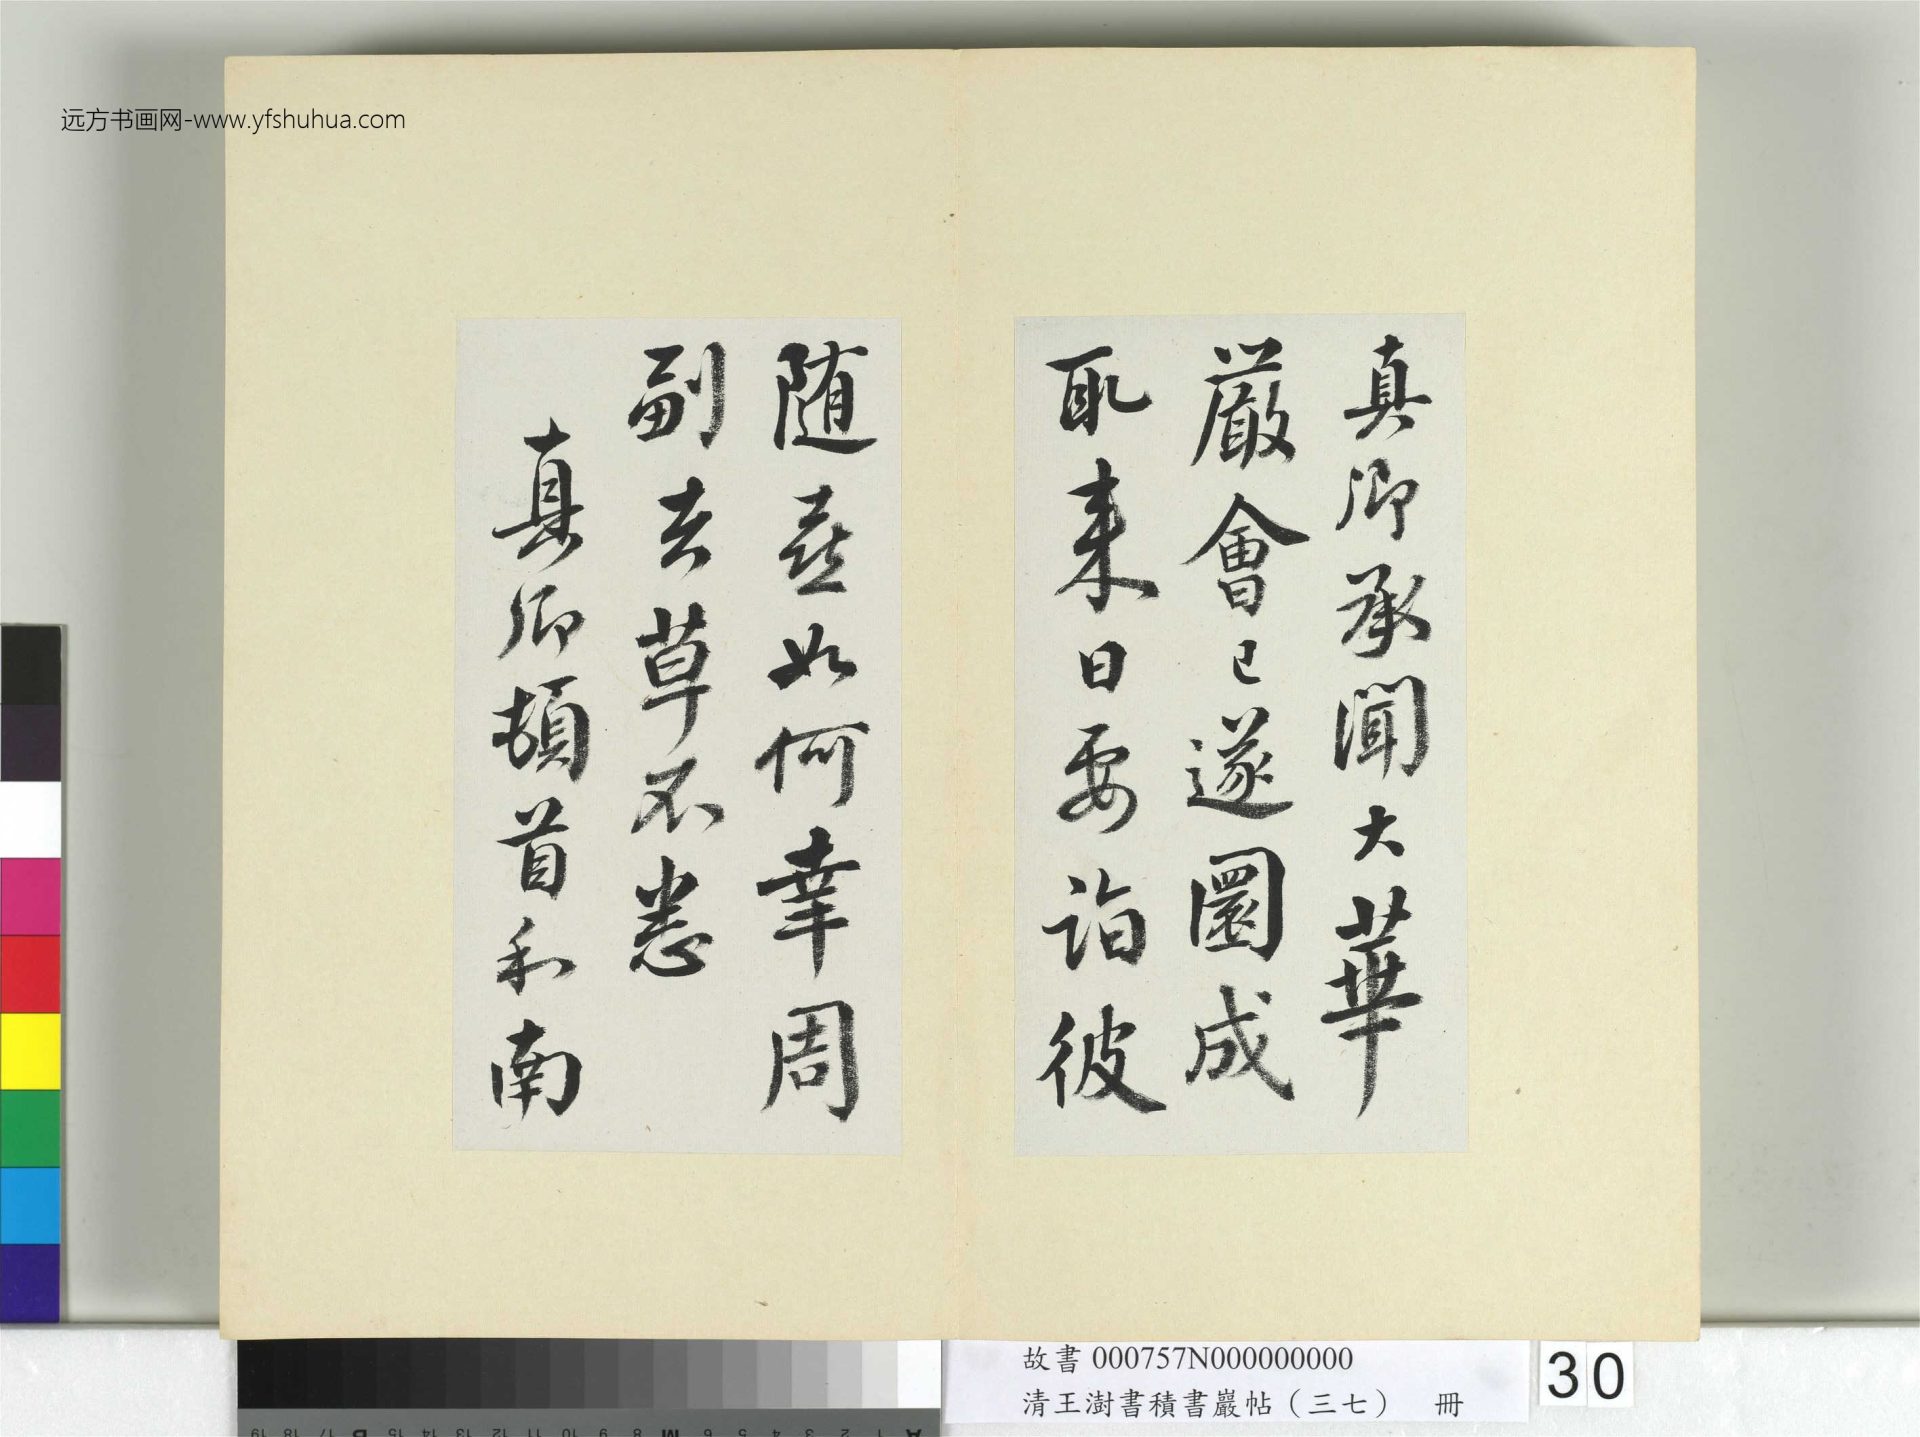 远方书画网-www.yfshuhua.com
真卿承聞大華
嚴會已遂圓成
取来日要詣彼
随喜如何幸周
副去草不悉
真卿頓首和南
故書 000757N000000000
清王澍書積書巖帖（三七） 冊
30